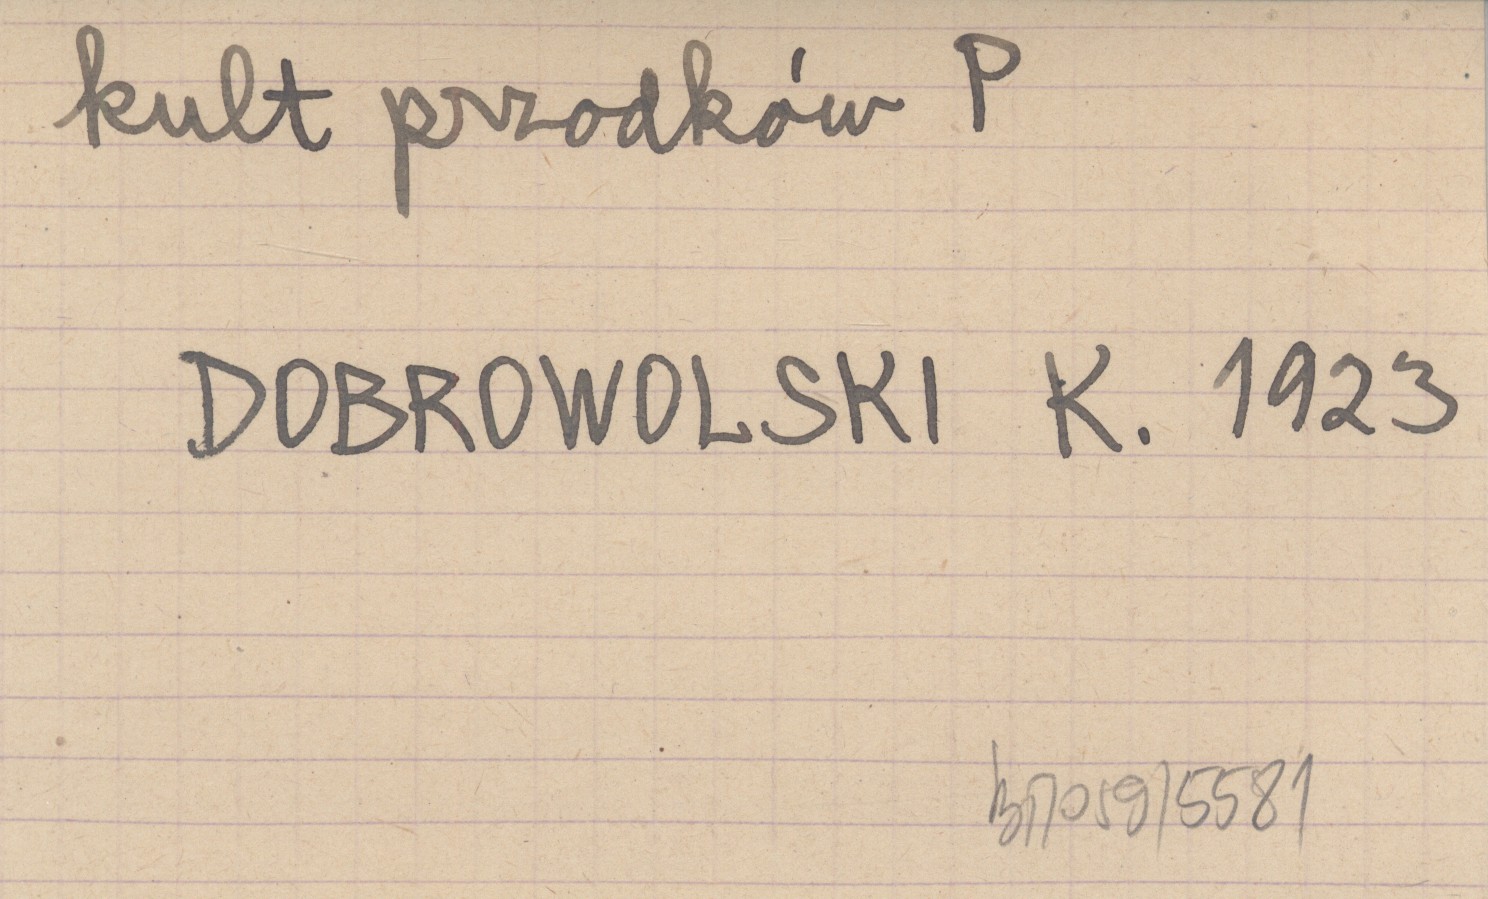 kult przodków P
DOBROWOLSKI K. 1923